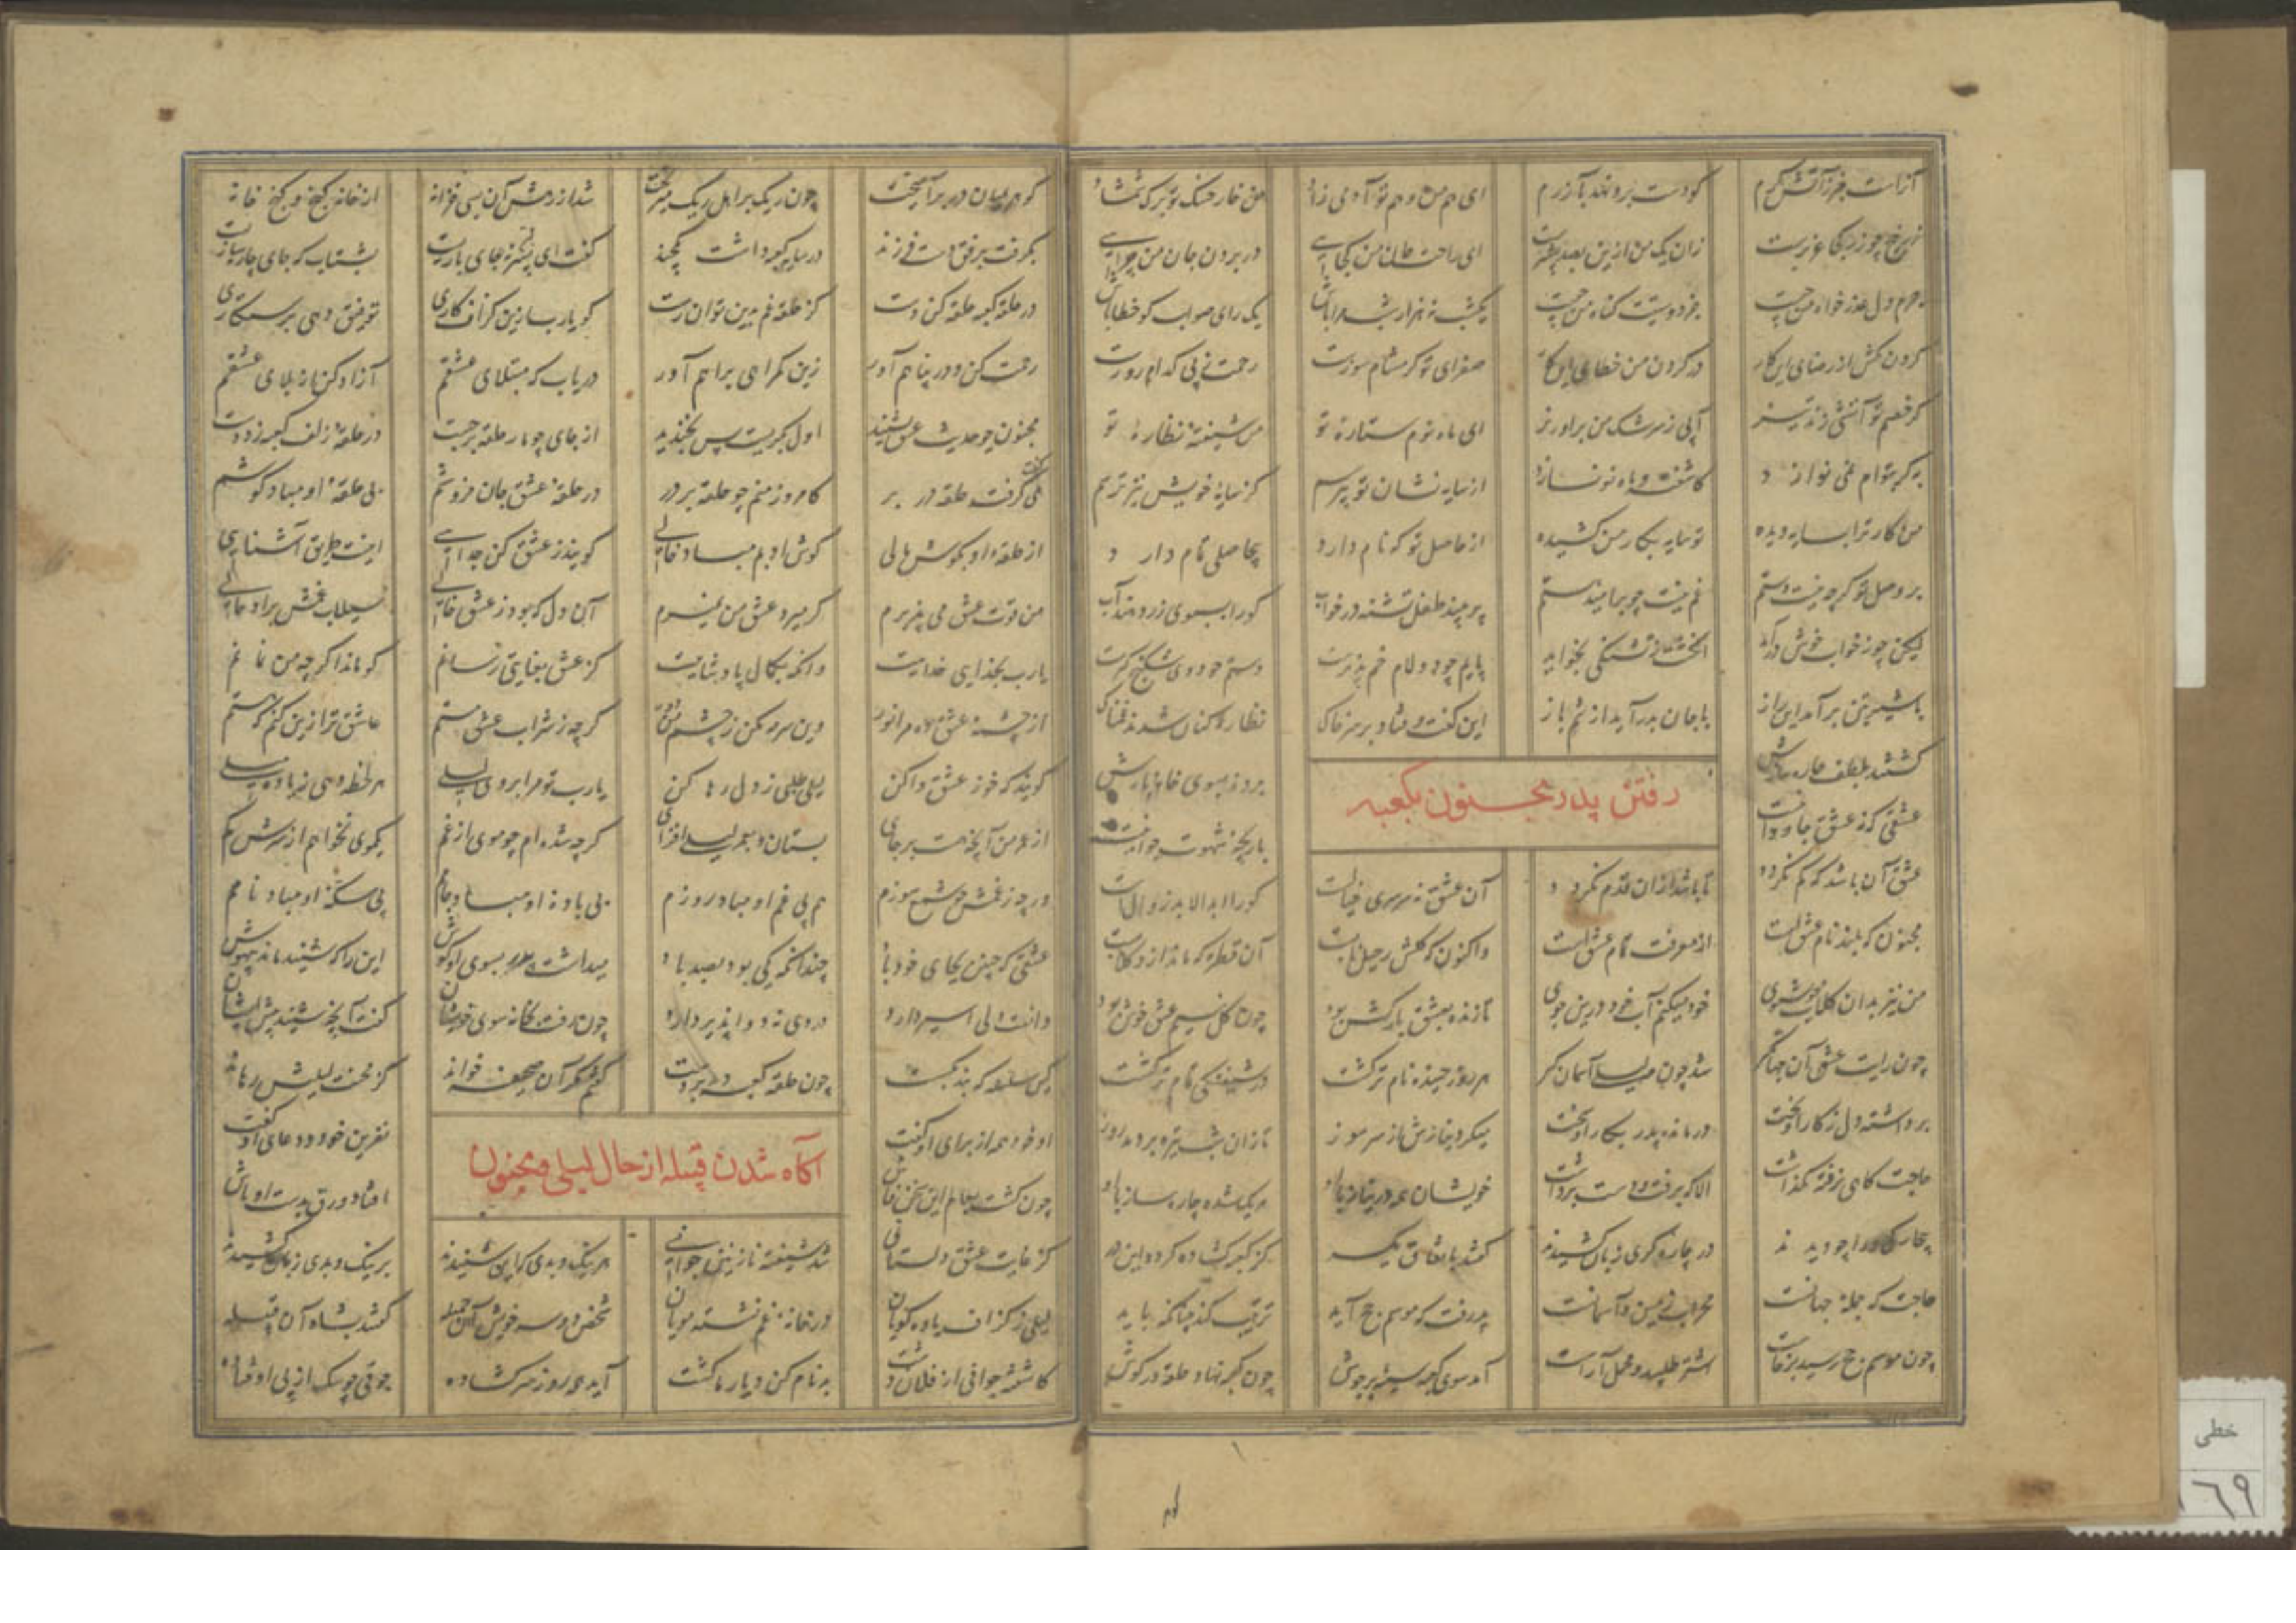 آنراست خبر ز آتش گرم کو دست برو نهد بآزرم ای هم من و هم تو آدمی زاد من خار خسک تو برک شمشاد
زرنیخ چو زر کجا عزیزست زان یک من ازین بصد پشیزست ای راحت جان من کجایی در بردن جان من چرایی
جرم دل عذر خواه من چیست جز دوستیت کناه من چیست یکشب ز هزار شب مرا باش یک رای صواب کو خطا باش
کردن مکش از رضای این کار در کردن من خطای این کار صفرای تو کر مشام سوزست رحمت ز پی کدام روزست
کر خشم تو آتشی زند تیز آبی ز سرشک من براو ریز ای ماه نوم ستاره تو من شیفته نظاره تو
به کر بتوام نمی نوازند کاشفته و ماه نو نسازند از سایه نشان تو نپرسم کز سایه خویش نیز ترسم
من کار ترا بسایه دیده تو سایه بکار من کشیده از حاصل تو که نام دارد بیحاصلی تمام دارد
بر وصل تو کرچه نیست دستم غم نیست چو بر امید هستم بیند طفل تشنه در خواب کورا بسبوی زر دهند آب
لیکن چو ز خواب خوش درآید انکشت ز تشنکی بخواید پایم چو دو لام خم پذیرست دستم چو دو ی شکنج کیرست
با شیر بتن برآمد این راز با جان بدر آید از تنم باز این کفت و فتاد بر سر خاک نظاره کنان شدند غمناک
کشتند بلطف چاره سازش بردند بسوی خانه بازش
رفتن پدر مجنون بکعبه
عشقی که نه عشق جاودانیست بازیچه شهوت جوانیست
عشق آن باشد که کم نکردد تا باشد ازان قدم نکردد آن عشق نه سرسری خیالست کورا ابد الابد زوالست
مجنون که بلند نام عشق است از معرفت تمام عشق است واکنون که کلش رحیل یابست آن قطره که ماند ازو کلابست
من نیز بدان کلاب خوشبوی خود میکنم آب خود درین جوی تا زنده بعشق بارکش بود چون کل بنسیم عشق خوش بود
چون رایت عشق آن جهانکیر شد چون مه لیلی آسمان کیر هر روز خمیده نام تر کشت در شیفتکی تمام تر کشت
برداشته دل ز کار او بخت درمانده پدر بکار او سخت میکرد نیازش از سر سوز تا زان شب تیره بردمد روز
حاجت کاهی نرفته نکذاشت الا که برفت و دست برداشت خویشان همه در نیاز با او هر یک شده چاره ساز با او
بیچارکی ورا چو دیدند در چاره کری زبان کشیدند کفتند باتفاق یکسر کز کعبه کشاده کردد این در
حاجت که جمله جهانست محراب زمین و آسمانست پذرفت که موسم حج آید ترتیب کند چنانکه باید
چون موسم حج رسید برخاست اشتر طلبید و محمل آراست آمد سوی کعبه سینه پر جوش چون کعبه نهاد حلقه در کوش
کوهر بمیان در برآمیخت چون ریک بر اهل ریک میریخت شد از دهش آن بسی خزانه از خانه کنج و کنج خانه
بکرفت برفق دست فرزند در سایه کعبه داشت یکچند کفت ای پسر نه جای بازیست بشتاب که جای چاره سازیست
در حلقه کعبه حلقه کن دست کز حلقه غم بدین توان رست کو یارب ازین کزاف کاری توفیق دهی برستکاری
رحمت کن و در پناهم آور زین کمراهی براهم آور دریاب که مبتلای عشقم آزاد کن از بلای عشقم
مجنون چو حدیث عشق بشنید اول بکریست پس بخندید از جای چو مار حلقه برجست در حلقه زلف کعبه زد دست
می کفت کرفته حلقه در بر کامروز منم چو حلقه بر در در حلقه عشق جان فروشم بی حلقه او مباد کوشم
کویند ز عشق کن جدایی اینست طریق آشنایی
من قوت ز عشق می پذیرم کر میرد عشق من نمیرم آن دل که بود ز عشق خالی سیلاب غمش براد حالی
یارب بخدایی خداییت وانکه بکمال پادشاییت کز عشق بغایتی رسانم کو ماند اکرچه من نمانم
از چشمه عشق ده مرا نور وین سرمه مکن ز چشم من دور کرچه ز شراب عشق مستم عاشق تر ازین کنم که هستم
کویند که خو ز عشق وا کن لیلی طلبی ز دل رها کن یارب تو مرا بروی لیلی هر لحظه دهی زیاده میلی
از عمر من آنچه هست بر جای بستان و بعمر لیلی افزای کرچه شده ام چو موی از غم یکموی نخواهم از سرش کم
ورچه ز غمش چو شمع سوزم هم بی غم او مباد روزم بی باده او مباد جامم بی سکه او مباد نامم
عشقی که چنین بجای خود باد چندانکه یکی بود بصد باد میداشت پدر بسوی او کوش این را که شنید ماند خاموش
دانست که دل اسیر دارد دردی نه دوا پذیر دارد چون رفت بخانه سوی خویشان کفت آنچه شنید پیش ایشان
چون حلقه کعبه دید در دست کفتم مکر آن صحیفه خواند کز محنت لیلیش رهاند
او خود همه از برای او کفت نفرین خود و دعای او کفت
آکاه شدن قبیله از حال لیلی و مجنون
چون کشت بعالم این سخن فاش افتاد ورق بدست اوباش
کز غایت عشق دلستانی شد شیفته نازنین جوانی هر نیک و بدی کزایی شنیدند بر نیک و بدی زبان کشیدند
لیلی ز کزاف یاوه کویان در خانه غم نشسته مویان شخصی دو سه خویش آن جمیله کفتند بشاه آن قبیله
کاشفته جوانی از فلان دشت بدنام کن دیار ما کشت آید همه روز سر کشاده جوقی چو سک از پی اوفتاده
خطی